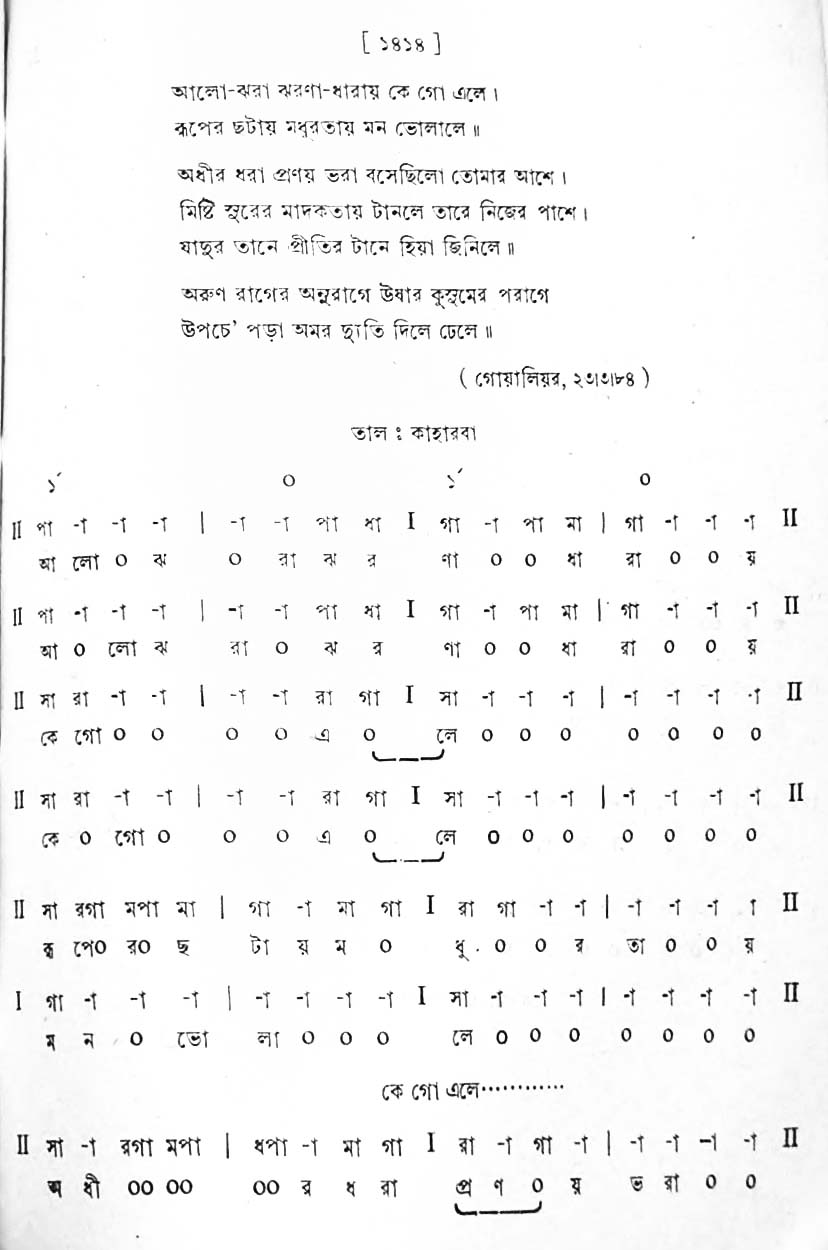 [ ১৪১৪ ]
আলো-ঝরা ঝরণা-ধারায় কে গো এলে।
রূপের ছটায় মধুরতায় মন ভোলালে॥
অধীর ধরা প্রণয় ভরা বসেছিলো তোমার আশে।
মিষ্টি সুরের মাদকতায় টানলে তারে নিজের পাশে।
যাদুর তানে প্রীতির টানে হিয়া জিনিলে॥
অরুণ রাগের অনুরাগে ঊষার কুসুমের পরাগে
উপচে' পড়া অমর দ্যুতি দিলে ঢেলে॥
( গোয়ালিয়র, ২৩।৩।৮৪ )
তাল : কাহারবা
১´ ০ ১´ ০
II পা -া -া -া | -া -া পা ধা I গা -া পা মা | গা -া -া -া II
আ লো ০ ঝ ০ রা ঝ র ণা ০ ০ ধা রা ০ ০ য়
II পা -া -া -া | -া -া পা ধা I গা -া পা মা | গা -া -া -া II
আ ০ লো ঝ রা ০ ঝ র ণা ০ ০ ধা রা ০ ০ য়
II সা রা -া -া | -া -া রা গা I সা -া -া -া | -া -া -া -া II
কে গো ০ ০ ০ ০ এ ০ লে ০ ০ ০ ০ ০ ০ ০
II সা রা -া -া | -া -া রা গা I সা -া -া -া | -া -া -া -া II
কে ০ গো ০ ০ ০ এ ০ লে ০ ০ ০ ০ ০ ০ ০
II সা রগা মপা মা | গা -া মা গা I রা গা -া -া | -া -া -া া II
রূ পে০ র০ ছ টা য় ম ০ ধু ০ ০ র তা ০ ০ য়
I গা -া -া -া | -া -া -া -া I সা -া -া -া | -া -া -া -া II
ম ন ০ ভো লা ০ ০ ০ লে ০ ০ ০ ০ ০ ০ ০
কে গো এলে············
II সা -া রগা মপা | ধপা -া মা গা I রা -া গা -া | -া -া -া -া II
অ ধী ০০ ০০ ০০ র ধ রা প্র ণ ০ য় ভ রা ০ ০